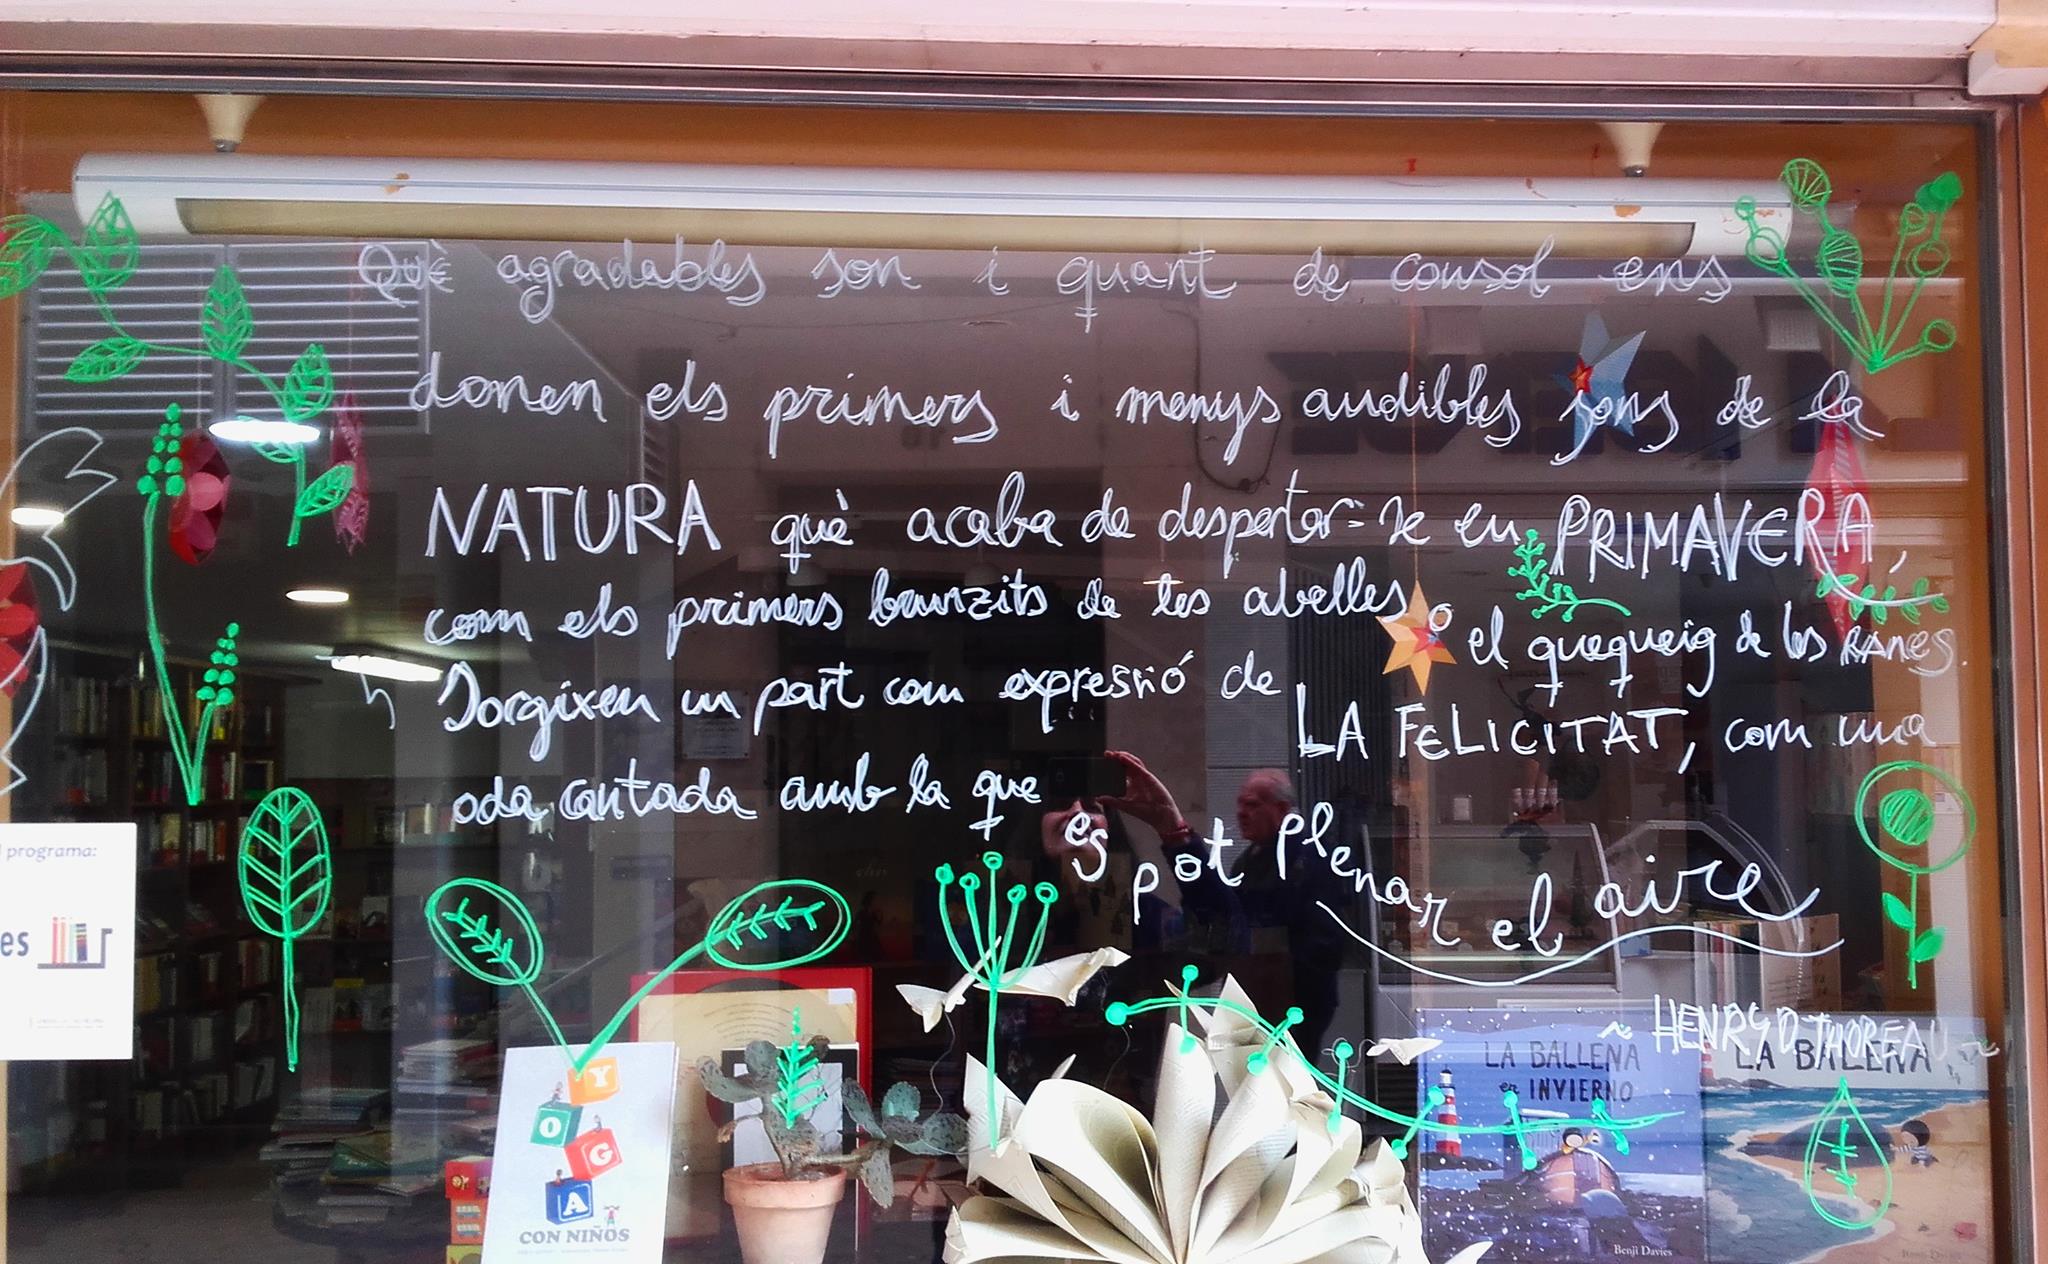 Què agradables son i quant de consol ens
donen els primers i menys audibles sons de la
NATURA què acaba de despertar-se en PRIMAVERA,
com els primers brunzits de les abelles o el quequeig de les RANES.
Sorgixen un part com expressió de LA FELICITAT, com una
oda cantada amb la que es pot plenar el aire
~ HENRY D. THOREAU ~
l programa:
es
Y
O
G
A
CON NIÑOS
LA BALLENA
en INVIERNO
Benji Davies
LA BALLENA
Benji Davies